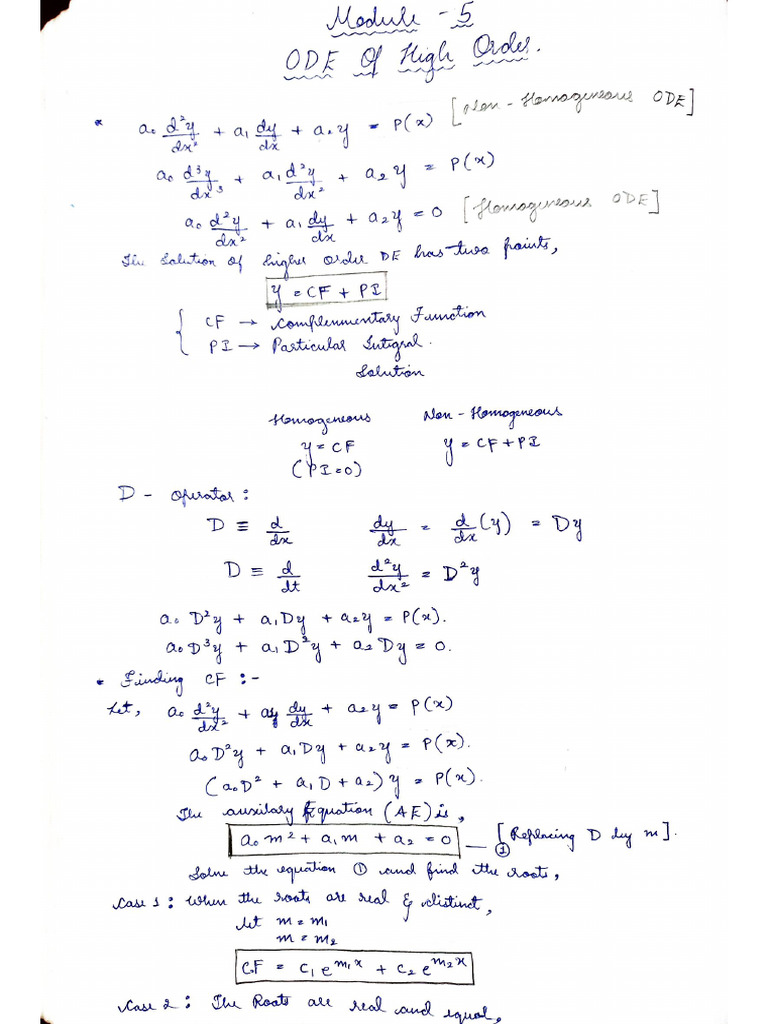 Module - 5
ODE Of High Order.
* a₀ d²y/dx² + a₁ dy/dx + a₂y = P(x) [Non-Homogeneous ODE]
a₀ d³y/dx³ + a₁ d²y/dx² + a₂ y = P(x)
a₀ d²y/dx² + a₁ dy/dx + a₂y = 0 [Homogeneous ODE]
The Solution of higher order DE has two points,
y = CF + PI
CF → Complenmentary Function
PI → Particular Integral.
Solution
Homogeneous Non-Homogeneous
y = CF y = CF + PI
(PI = 0)
D - operator :
D ≡ d/dx dy/dx = d/dx (y) = Dy
D ≡ d/dt d²y/dx² = D²y
a₀ D²y + a₁Dy + a₂y = P(x).
a₀D³y + a₁D²y + a₂Dy = 0.
* Finding CF :-
Let, a₀ d²y/dx² + a₁ dy/dx + a₂y = P(x)
a₀D²y + a₁Dy + a₂y = P(x).
(a₀D² + a₁D + a₂)y = P(x).
The auxilary Equation (AE) is,
a₀m² + a₁m + a₂ = 0 — ① [Replacing D by m].
Solve the equation ① and find the roots,
Case 1 : When the roots are real & distinct,
Let m = m₁
m = m₂
CF = c₁e^{m₁x} + c₂e^{m₂x}
Case 2 : The Roots are real and equal,